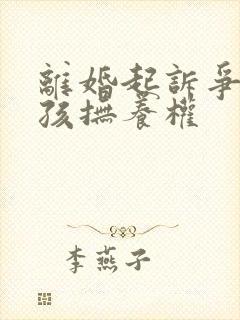 離婚起訴爭
孩撫養權
李燕子